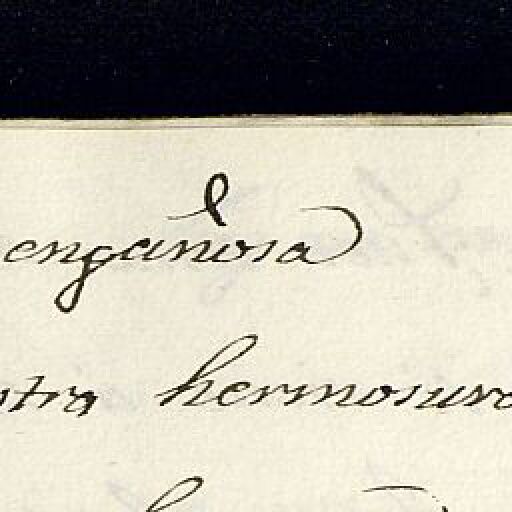 engañosa
stra hermosura